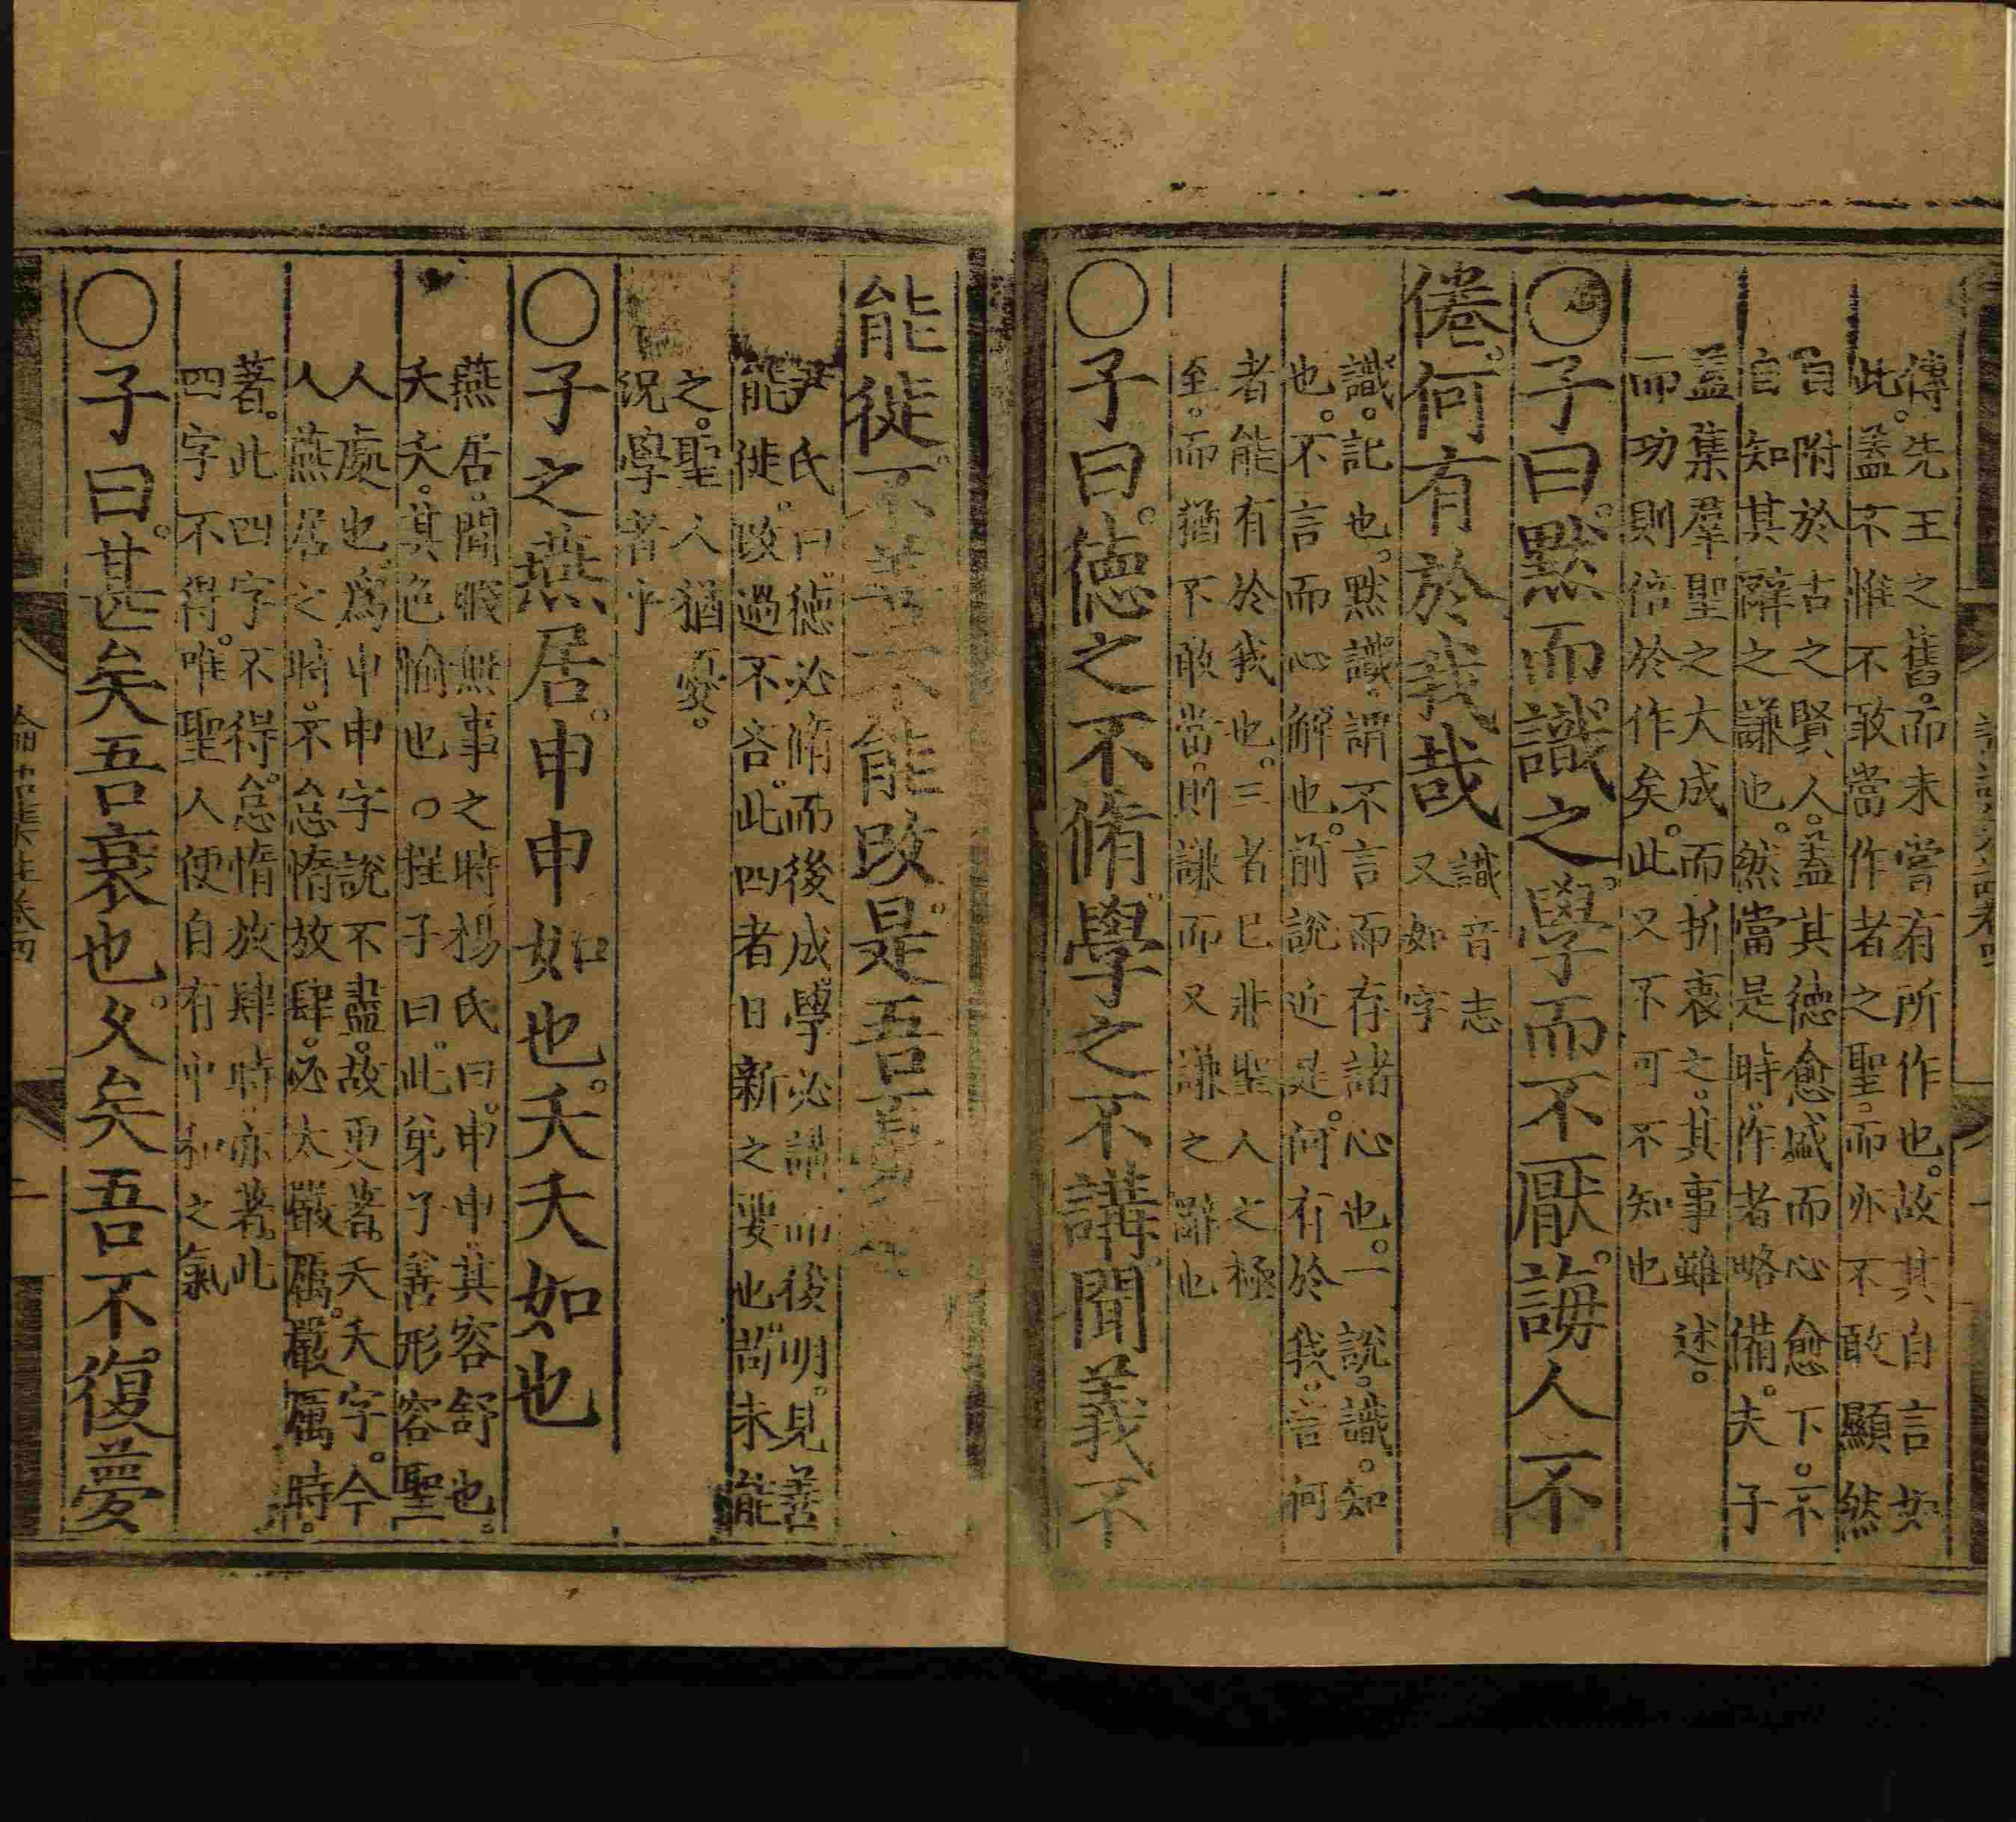 傳先王之舊。而未嘗有所作也。故其自言如
此。蓋不惟不敢當作者之聖。而亦不敢顯然
自附於古之賢人。蓋其德愈盛而心愈下。不
自知其辭之謙也。然當是時。作者略備。夫子
蓋集羣聖之大成而折衷之。其事雖述。
而功則倍於作矣。此又不可不知也
○子曰。黙而識之。學而不厭。誨人不
倦。何有於我哉
識音志
又如字
識。記也。黙識。謂不言而存諸心也。一說。識。知
也。不言而心解也。前說近是。何有於我。言何
者能有於我也。三者已非聖人之極
至。而猶不敢當。則謙而又謙之辭也
○子曰。德之不脩。學之不講。聞義不
能徙。不善不能改。是吾憂也
尹氏曰。德必脩而後成。學必講而後明。見善
能徙。改過不吝。此四者日新之要也。尚未能
之。聖人猶憂。
況學者乎
○子之燕居。申申如也。夭夭如也
燕居。閒暇無事之時。楊氏曰。申申。其容舒也。
夭夭。其色愉也。○程子曰。此弟子善形容聖
人處也。爲申申字說不盡。故更著夭夭字。今
人燕居之時。不怠惰放肆。必太嚴厲。嚴厲時。
著。此四字不得。怠惰放肆時。亦著。此
四字不得。唯聖人便自有中和之氣
○子曰。甚矣吾衰也。久矣吾不復夢